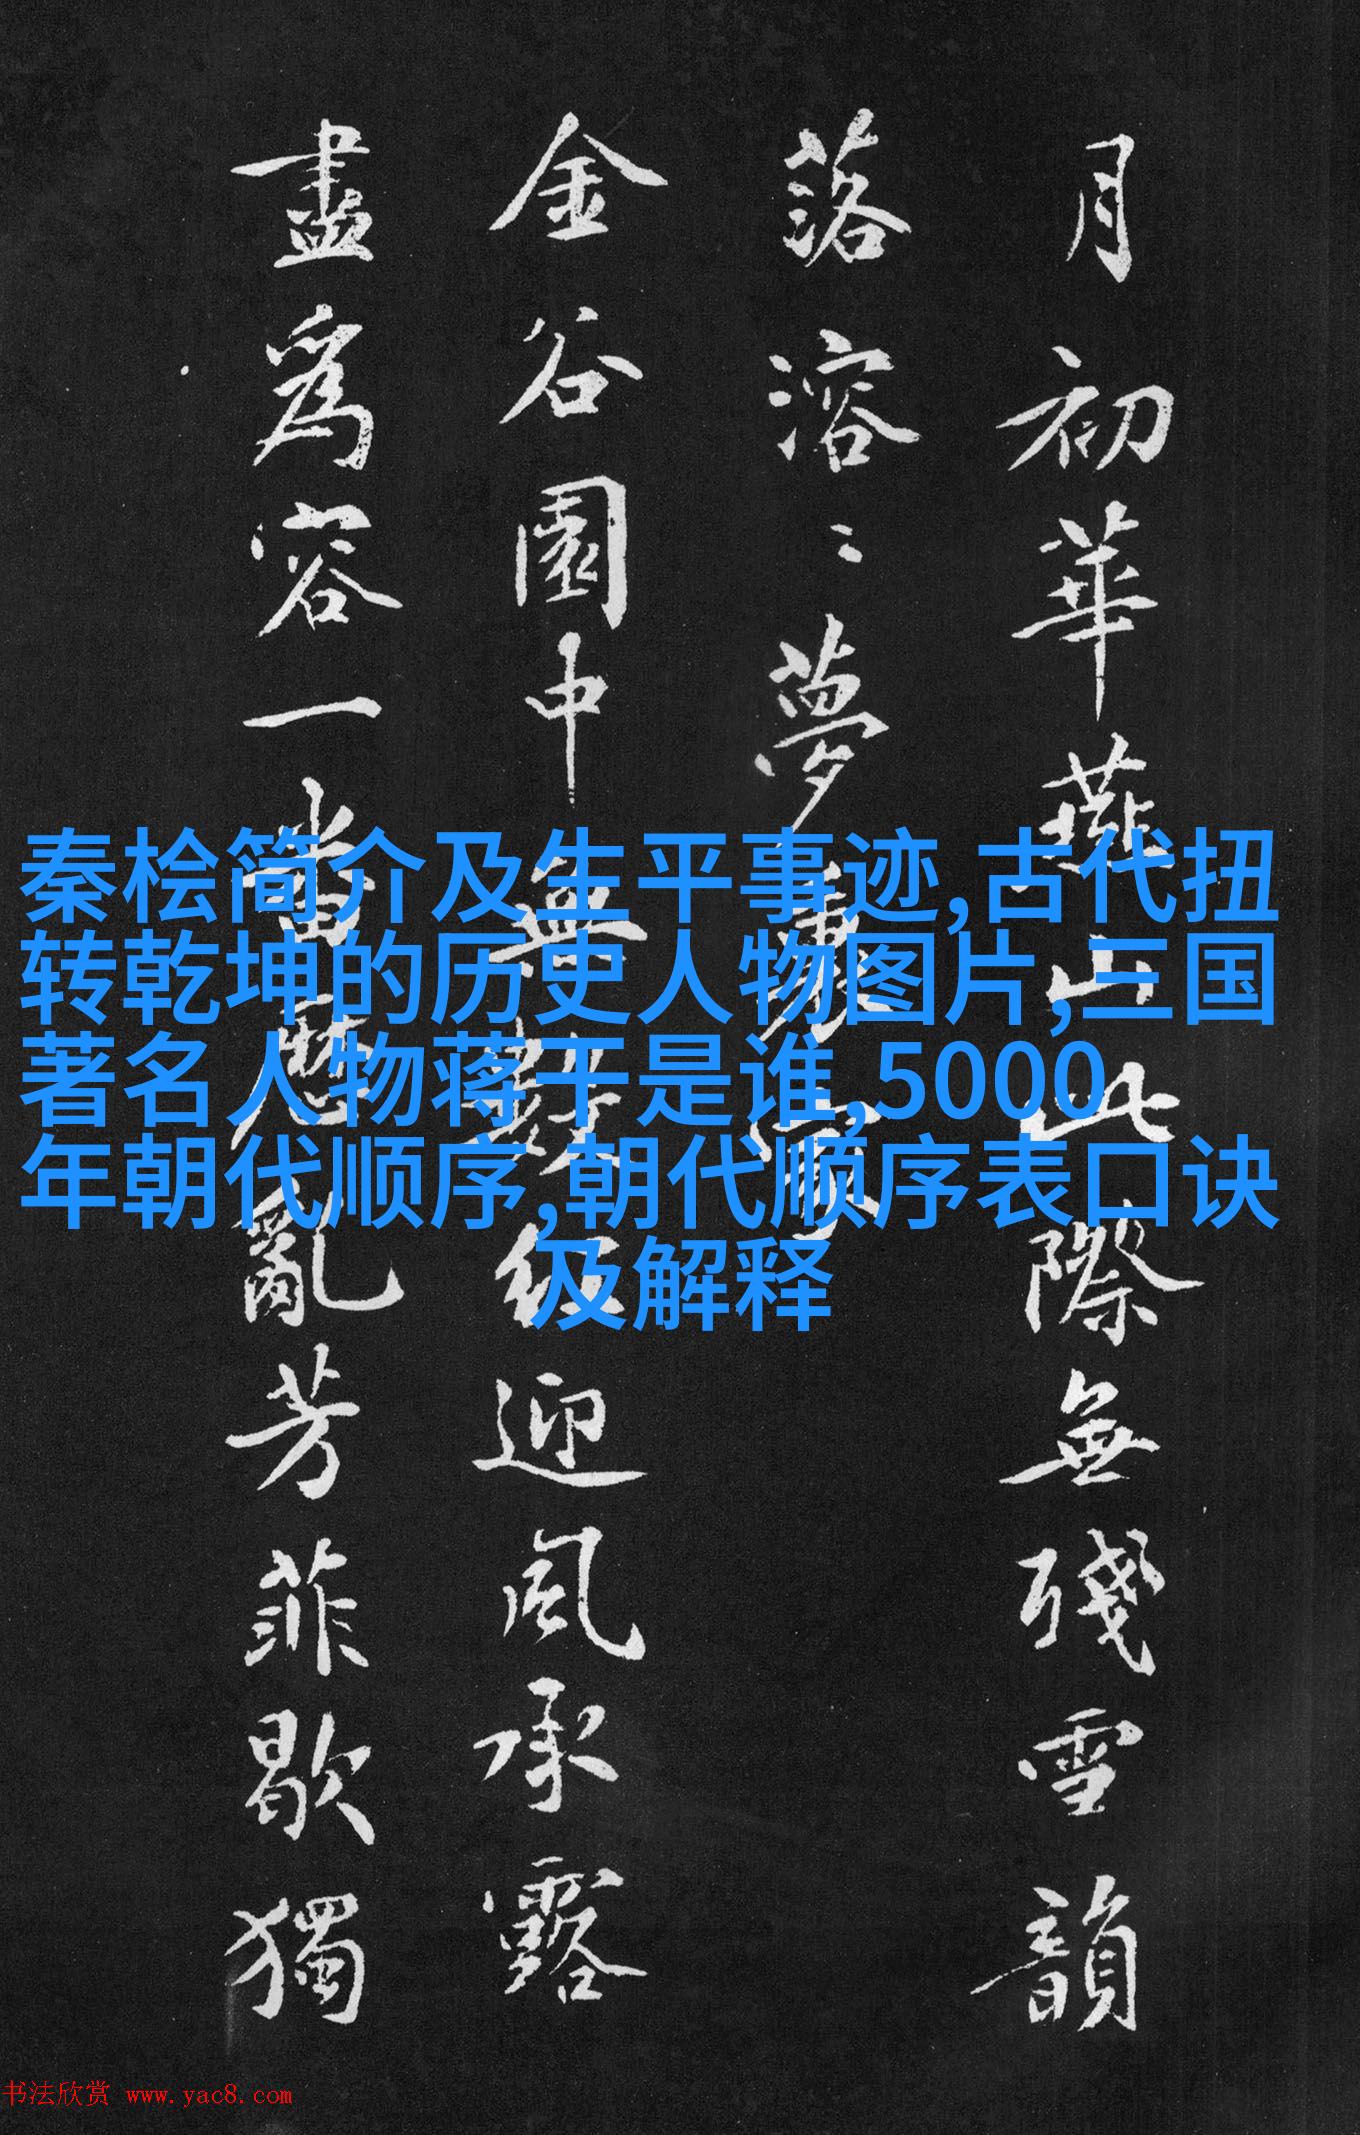 月初華燕山此際無殘雪韻
落溶〻夢
金谷園中無數紅迎風承露
盡爲容一當亂芳菲歇獨
秦桧简介及生平事迹,古代扭
转乾坤的历史人物图片,三国
著名人物蒋干是谁,5000
年朝代顺序,朝代顺序表口诀
及解释
书法欣赏 www.yac8.com